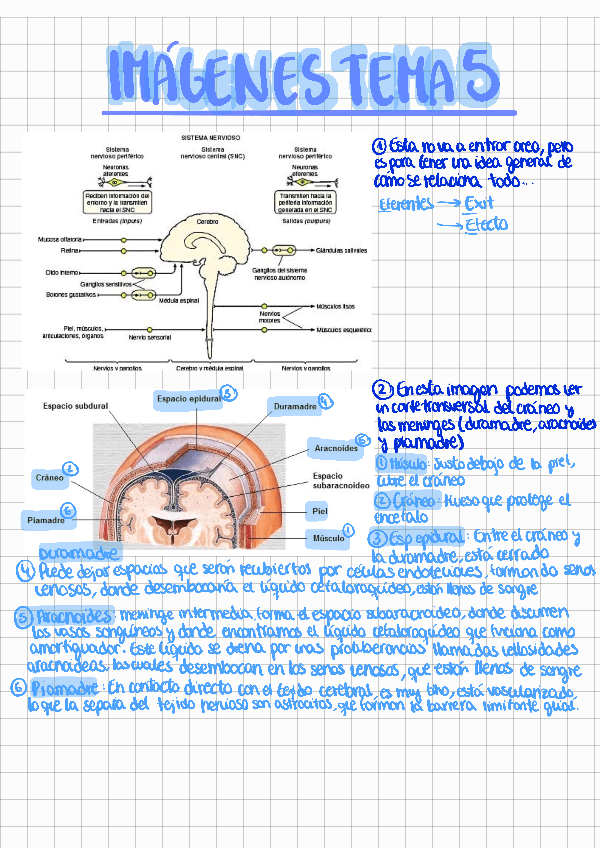 IMÁGENES TEMA 5
SISTEMA NERVIOSO
Sistema nervioso periférico
Sistema nervioso central (SNC)
Sistema nervioso periférico
Neuronas aferentes
Neuronas eferentes
Reciben información del entorno y la transmiten hacia el SNC
Transmiten hacia la periferia información generada en el SNC
Entradas (inputs)
Cerebro
Salidas (outputs)
Mucosa olfatoria
Retina
Glándulas salivales
Oído interno
Ganglios sensitivos
Ganglios del sistema nervioso autónomo
Botones gustativos
Médula espinal
Músculos lisos
Nervios motores
Piel, músculos, articulaciones, órganos
Nervio sensorial
Músculos esqueléticos
Nervios y ganglios
Cerebro y médula espinal
Nervios y ganglios
① Esta no va a entrar creo, pero
es para tener una idea general de
cómo se relaciona todo...
Eferentes → Exit
→ Efecto
Espacio subdural
Espacio epidural 3
Duramadre 4
Aracnoides 5
Cráneo 2
Espacio subaracnoideo
Piamadre 6
Piel
Músculo 1
② En esta imagen podemos ver
un corte transversal del cráneo y
las meninges (duramadre, aracnoides
y piamadre)
① Músculo: Justo debajo de la piel,
cubre el cráneo
② Cráneo: Hueso que protege el
encéfalo
③ Esp epidural: Entre el cráneo y
la duramadre, está cerrado
Duramadre
④ Puede dejar espacios que serán recubiertos por células endoteliales, formando senos
venosos, donde desembocaría el líquido cefaloraquídeo, están llenos de sangre
⑤ Aracnoides: meninge intermedia, forma el espacio subaracnoideo, donde discurren
los vasos sanguíneos y donde encontramos el líquido cefaloraquídeo que funciona como
amortiguador. Este líquido se drena por unas protuberancias llamadas vellosidades
aracnoideas, las cuales desembocan en los senos venosos, que están llenos de sangre
⑥ Piamadre: En contacto directo con el tejido cerebral, es muy fino, está vascularizado,
lo que la separa del tejido nervioso son astrocitos, que forman la barrera limitante glial.